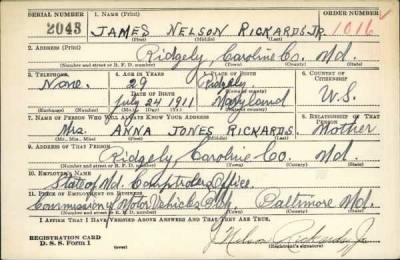 SERIAL NUMBER 1. NAME (Print) ORDER NUMBER
2043 JAMES NELSON RICKARDS JR. 1016
(First) (Middle) (Last)
2. ADDRESS (Print)
Ridgely Caroline Co. Md.
(Number and street or R. F. D. number) (Town) (County) (State)
3. TELEPHONE 4. AGE IN YEARS 5. PLACE OF BIRTH 6. COUNTRY OF CITIZENSHIP
None. 29 Ridgely
DATE OF BIRTH (Town or county)
July 24 1911 Maryland U.S.
(Exchange) (Number) (Mo.) (Day) (Yr.) (State or country)
7. NAME OF PERSON WHO WILL ALWAYS KNOW YOUR ADDRESS 8. RELATIONSHIP OF THAT PERSON
Mrs. ANNA JONES RICKARDS Mother
(Mr., Mrs., Miss) (First) (Middle) (Last)
9. ADDRESS OF THAT PERSON
Ridgely Caroline Co. Md.
(Number and street or R. F. D. number) (Town) (County) (State)
10. EMPLOYER'S NAME
State of Md. Comptrolers Office.
11. PLACE OF EMPLOYMENT OR BUSINESS
Commissioner of Motor Vehicles Bldg. Baltimore Md.
(Number and street or R. F. D. number) (Town) (County) (State)
I AFFIRM THAT I HAVE VERIFIED ABOVE ANSWERS AND THAT THEY ARE TRUE.
REGISTRATION CARD
D. S. S. Form 1
J. Nelson Rickards Jr.